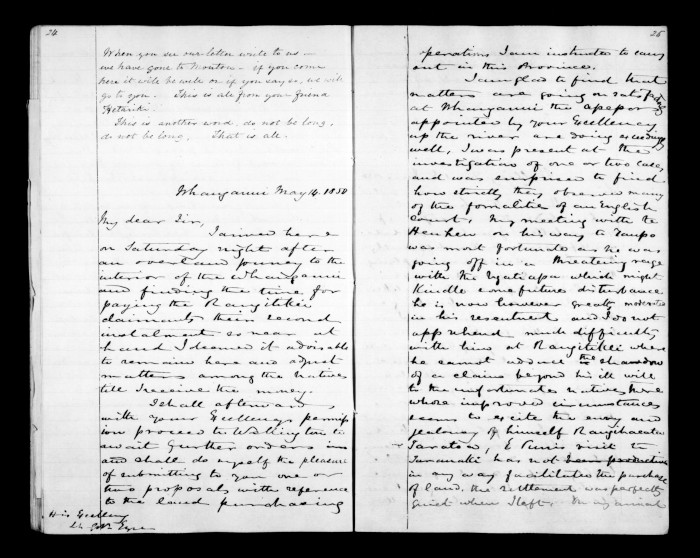 24
When you see our letter write to us —
we have gone to - if you come
here it will be well or if you say so, we will
go to you. This is all from your friend
This is another word, do not be long,
do not be long. That is all.
Whanganui May 14. 1850
My dear Sir,
I arrived here
on Saturday night after
an overland journey to the
interior of the Whanganui
and finding the time for
paying the Rangitikei
claimants their second
instalment so near at
hand I deemed it advisable
to remain here and adjust
matters among the natives
till I receive the money.
I shall afterwards
with your Excellencys permiss
ion proceed to Wellington to
await further orders
and shall do myself the pleasure
of submitting to you one or
two proposals with reference
to the land purchasing
His Excellency
Lt. Govr Eyre
25
operations I am instructed to carry
out in this Province.
I am glad to find that
matters are going on satisfactorily
at Whanganui the
appointed by your Excellency
up the river are doing exceedingly
well, I was present at the
investigation of one or two cases
and was surprised to find
how strictly they observe many
of the formalities of an English
court, My meeting with Te
Heuheu on his way to Taupo
was most fortunate as he was
going off in a threatening rage
with the Ngatiapa which might
kindle some future disturbance
he is now however greatly moderated
in his resentment and I do not
apprehend much difficulty
with him at Rangitikei where
he cannot adduce the shadow
of a claim beyond his ill will
to the unfortunate natives there
whose improved circumstances
seems to excite the envy and
jealousy of himself Rangihaeata
Taratoa, E Puni's visit to
Taranaki has not been productive
in any way facilitated the purchase
of land, the settlement was perfectly
quiet when I left. On my arrival